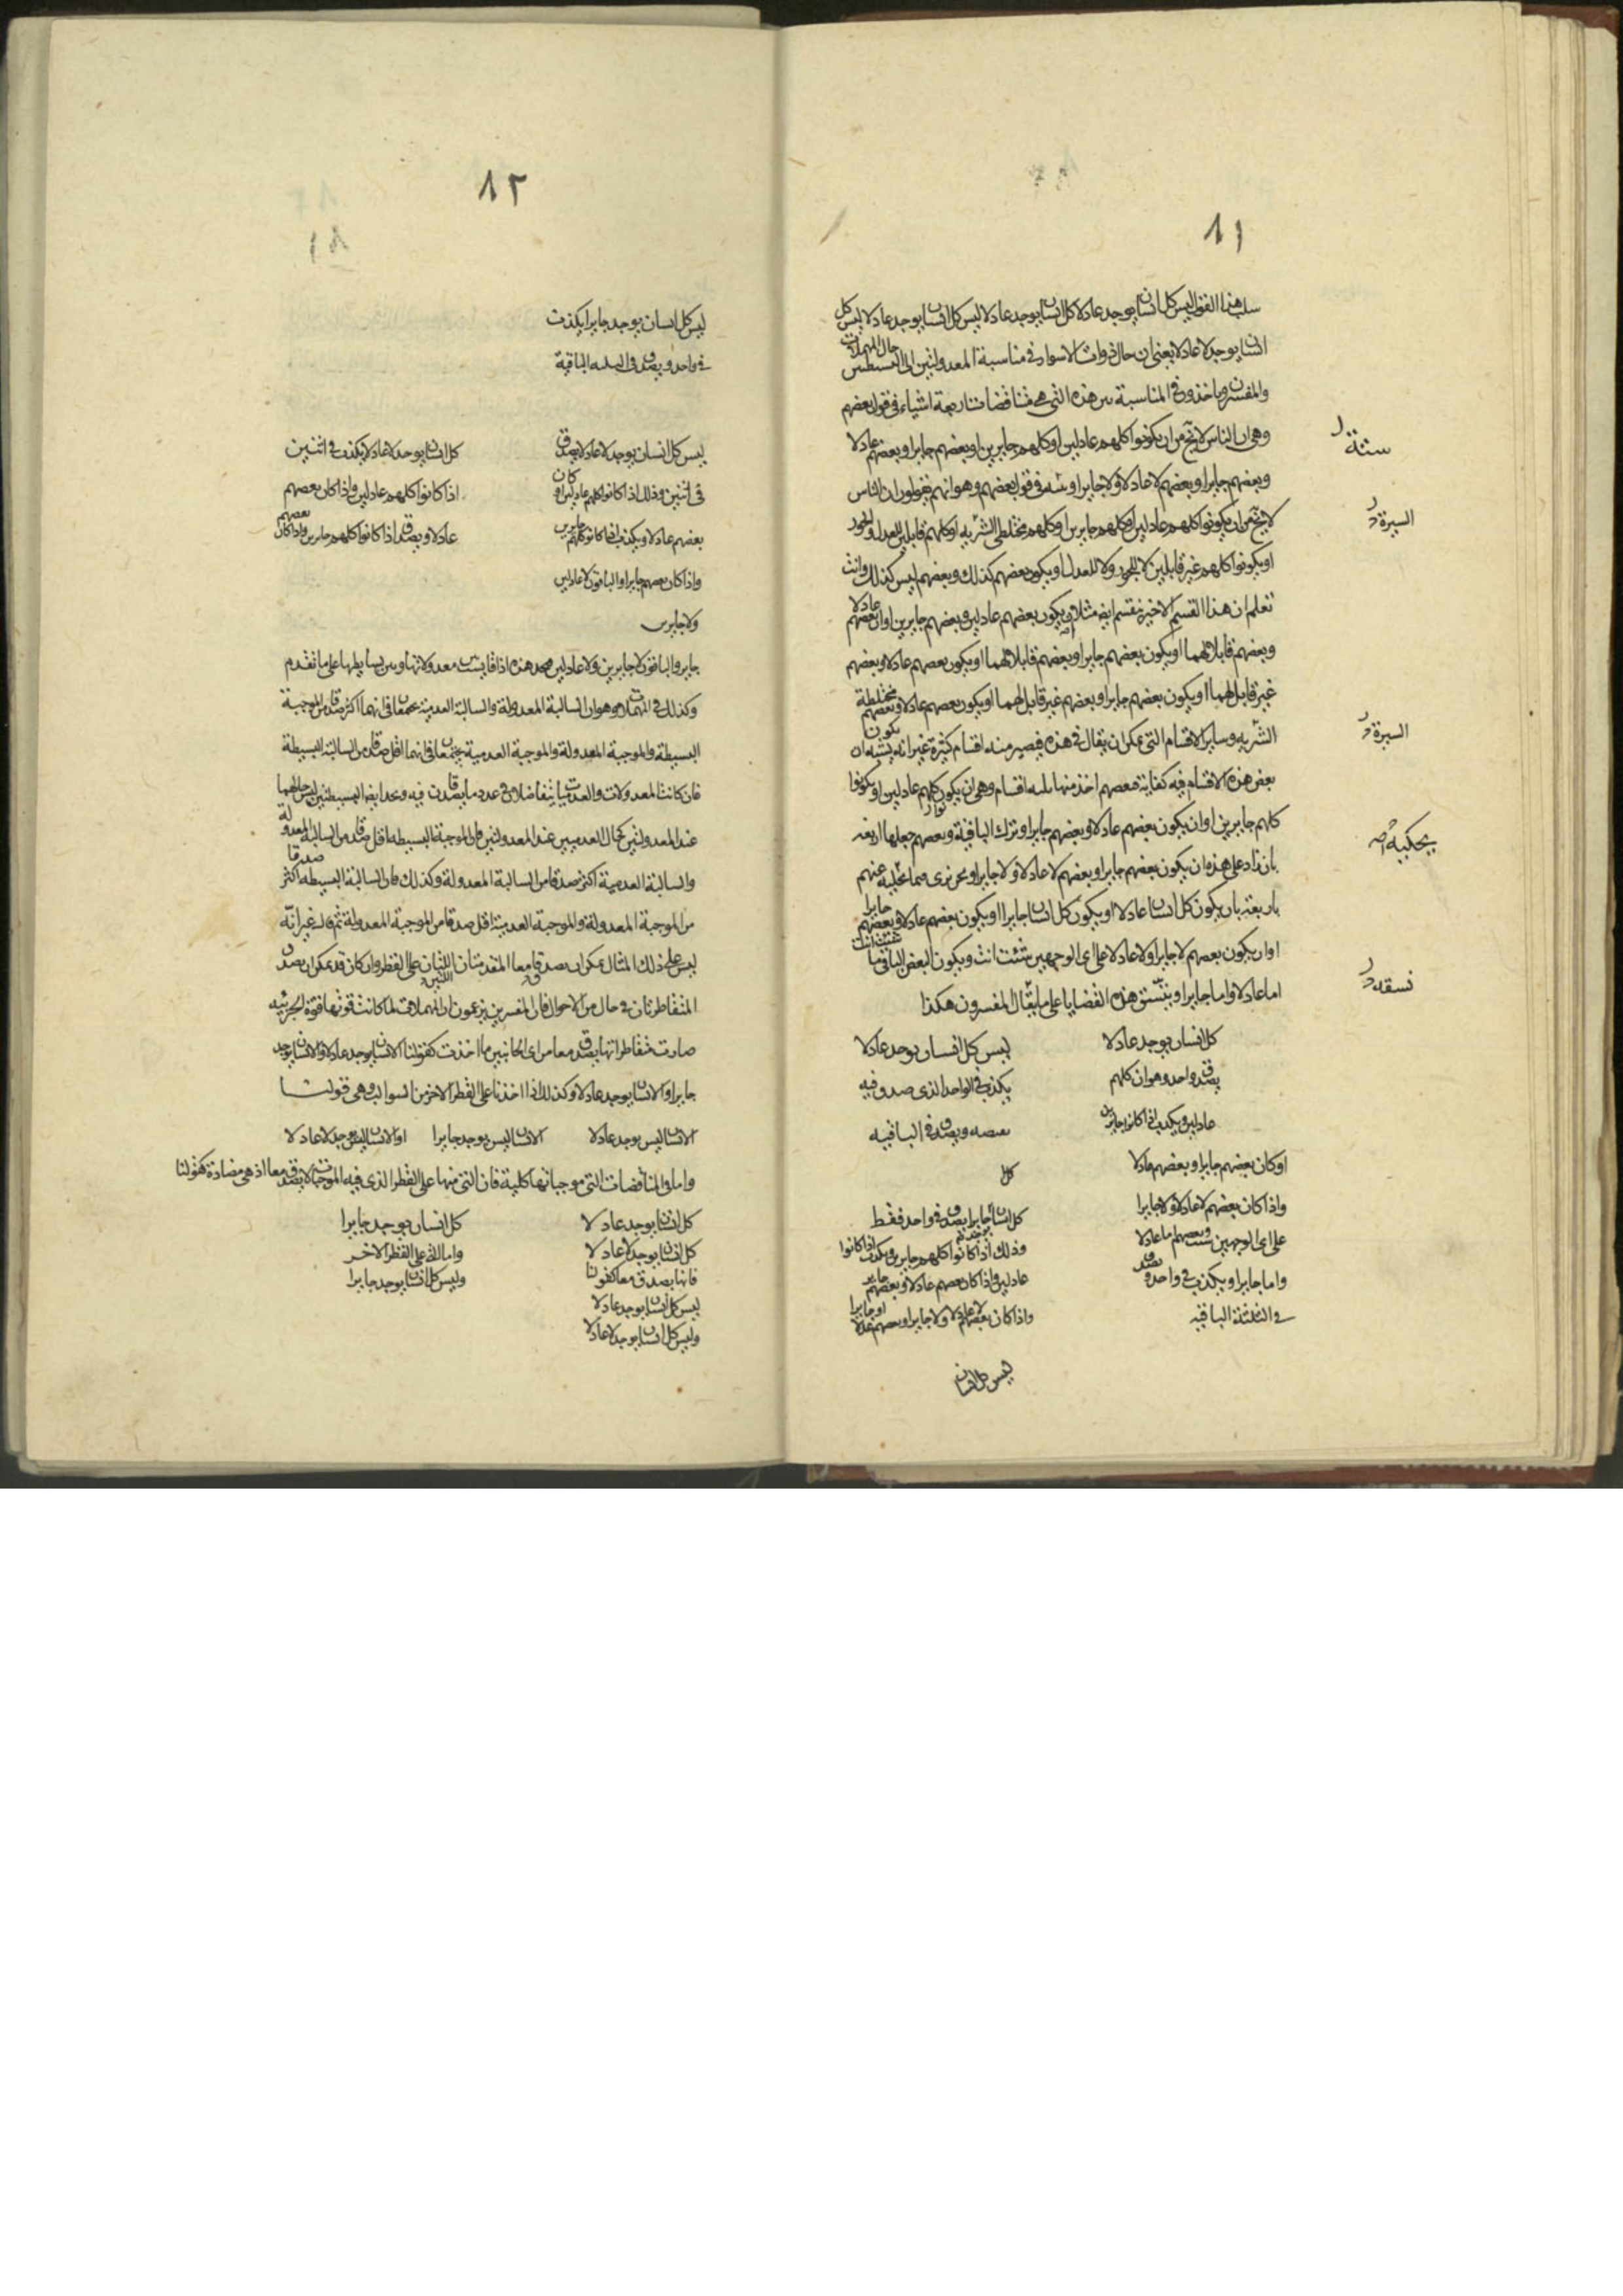 ١١
سلب هذا القول ليس كل انسان يوجد عادلا كل انسان يوجد عادلا ليس كل انسان يوجد عادلا ليس كل
انسان يوجد لا عادلا يعني ان حال ذوات الاسوار في مناسبة المعدولتين الى البسيطتين حال المهملات
والمفسرون ياخذون في المناسبة بين هذه التي هي متناقضات اربعة اشياء في قول بعضهم
وهي ان الناس لا يخ من ان يكونوا كلهم عادلين او كلهم جايرين او بعضهم جايرا وبعضهم عادلا
وبعضهم جايرا وبعضهم لا عادلا ولا جايرا وستة في قول بعضهم وهو انهم يقولون ان الناس
لا يخ من ان يكونوا كلهم عادلين او كلهم جايرين او كلهم مختلطي الشريه او كلهم قابلين للعدل والجور
او يكونوا كلهم غير قابلين لا للجور ولا للعدل او يكون بعضهم كذلك وبعضهم ليس كذلك وانت
تعلم ان هذا القسم الاخير ينقسم ايضا مثلا ان يكون بعضهم عادلين وبعضهم جايرين او ان بعضهم عادلا
وبعضهم قابلا لهما او يكون بعضهم جايرا وبعضهم قابلا لهما او يكون بعضهم عادلا وبعضهم
غير قابل لهما او يكون بعضهم جايرا وبعضهم غير قابل لهما او يكون بعضهم عادلا وبعضهم مختلطة
الشريه وساير الاقسام التي يمكن ان يقال في هذه فيصير منه اقسام كثيرة غير انه يشبه ان يكون
بعض هذه الاقسام فيه كفاية فبعضهم اخذ منها ثلثه اقسام وهي ان يكون كلهم عادلين او يكونوا
كلهم جايرين او ان يكون بعضهم عادلا وبعضهم جايرا وترك الباقية وبعضهم جعلها اربعه
بان زاد على هذه ان يكون بعضهم جايرا وبعضهم لا عادلا ولا جايرا ونحن نرى فيما نحكيه عنهم
باربعة بان يكون كل انسان عادلا او يكون كل انسان جايرا او يكون بعضهم عادلا وبعضهم جايرا
او ان يكون بعضهم لا جايرا ولا عادلا على اي الوجهين شئت انت ويكون البعض الباقي
اما عادلا واما جايرا وينسق هذه القضايا على ما يقال المفسرون هكذا
ستة
السيرة
السيرة
نسقه
كل انسان يوجد عادلا
يصدق واحد وهو ان كلهم
عادلين ويكذب اذا كانوا جايرين
او كان بعضهم جايرا وبعضهم عادلا
واذا كان بعضهم لا عادلا ولا جايرا
على اي الوجهين شئت وبعضهم اما عادلا
واما جايرا ويكذب في واحد ويصدق
في الثلثة الباقيه
ليس كل انسان يوجد عادلا
يكذب في الواحد الذي صدق فيه
نقيضه ويصدق في الباقيه
كل
كل انسان يوجد جايرا يصدق في واحد فقط
وذلك اذا كانوا كلهم جايرين ويكذب اذا كانوا
عادلين واذا كان بعضهم عادلا وبعضهم جاير
واذا كان بعضهم لا عادلا ولا جايرا وبعضهم عادلا او جايرا
ليس كل انسان
١٢
ليس كل انسان يوجد جايرا يكذب
في واحد ويصدق في الثلثه الباقية
ليس كل انسان يوجد لا عادلا يصدق
في اثنين وذلك اذا كانوا كلهم عادلين او كان
بعضهم عادلا ويكذب اذا كانوا كلهم جايرين
واذا كان بعضهم جايرا والباقون لا عادلين
ولا جايرين
كل انسان يوجد لا عادلا يكذب في اثنين
اذا كانوا كلهم عادلين واذا كان بعضهم
عادلا ويصدق اذا كانوا كلهم جايرين واذا كان بعضهم
جاير والباقون لا جايرين ولا عادلين فنجد هذه اذا قايست معدولاتها وبين بسايطها على ما تقدم
وكذلك في المهملات وهو ان السالبة المعدولة والسالبة العدمية يجتمعان في انهما اكثر صدقا من الموجبة
البسيطة والموجبة المعدولة والموجبة العدمية يجتمعان في انهما اقل صدقا من السالبة البسيطة
فان كانت المعدولات والعدميات يتفاضلان في عدد ما يصدقان فيه ونجد ايضا البسيطتين ليس حالهما
عند المعدولتين كحال العدميتين عند المعدولتين فان الموجبة البسيطه اقل صدقا من السالبة المعدولة
والسالبة العدمية اكثر صدقا من السالبة المعدولة وكذلك فان السالبة البسيطه اكثر صدقا
من الموجبة المعدولة والموجبة العدمية اقل صدقا من الموجبة المعدولة ثم قال غير انه
ليس على ذلك المثال يمكن ان يصدق معا المقدمتان اللتان على القطر وان كان قد يمكن ان يصدق
المتقاطرتان في حال من الاحوال فان المفسرين يزعمون ان المهملات لما كانت قوتها قوة الجزئيه
صارت متقاطراتها يصدق معا من اي الجانبين ما اخذت كقولنا الانسان يوجد عادلا والانسان يوجد
جايرا والانسان يوجد عادلا وكذلك اذا اخذنا على القطر الاخر من السوالب وهي قولنا
الانسان ليس يوجد عادلا الانسان ليس يوجد جايرا او الانسان ليس يوجد لا عادلا
واما في المتناقضات التي موجباتها كلية فان التي منها على القطر الذي فيه الموجبات لا يصدق معا اذ هي مضادة كقولنا
كل انسان يوجد عادلا
كل انسان يوجد لا عادلا
فانها يصدق معا كقولنا
ليس كل انسان يوجد عادلا
وليس كل انسان يوجد لا عادلا
كل انسان يوجد جايرا
واما التي على القطر الاخر
وليس كل انسان يوجد جايرا